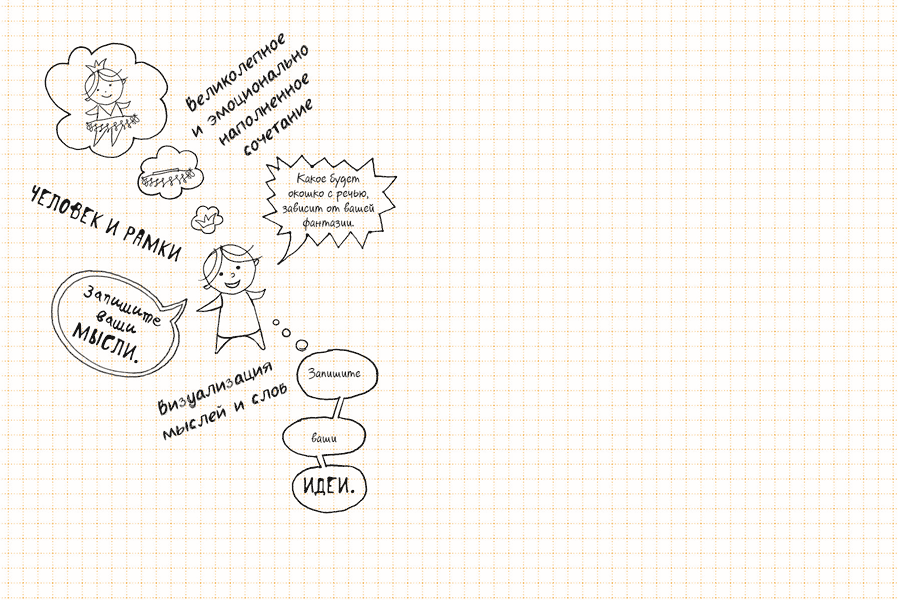 Великолепное
и эмоционально
наполненное
сочетание
Какое будет
окошко с речью,
зависит от вашей
фантазии.
ЧЕЛОВЕК И РАМКИ
Запишите
ваши
МЫСЛИ.
Визуализация
мыслей и слов
Запишите
ваши
ИДЕИ.